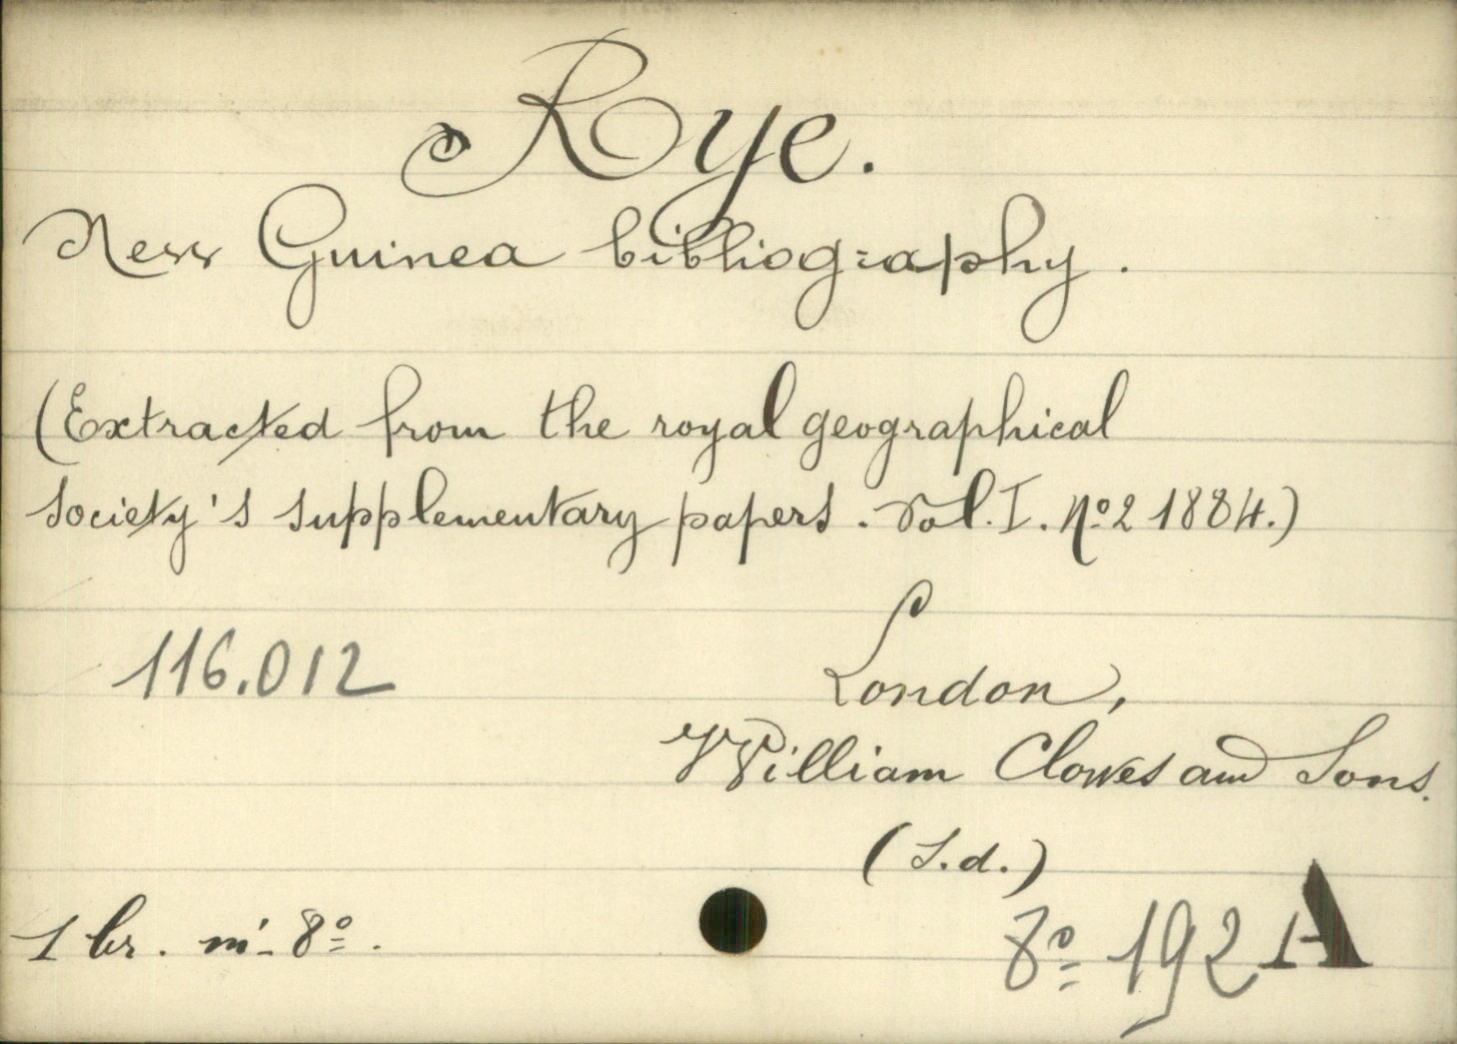 Rye.
New Guinea bibliography.
(Extracted from the royal geographical
society's supplementary papers. Vol. I. Nº 2 1884.)
116.012
London,
William Clowes and Sons.
(S.d.)
1 br. in-8º.
8º 192 A